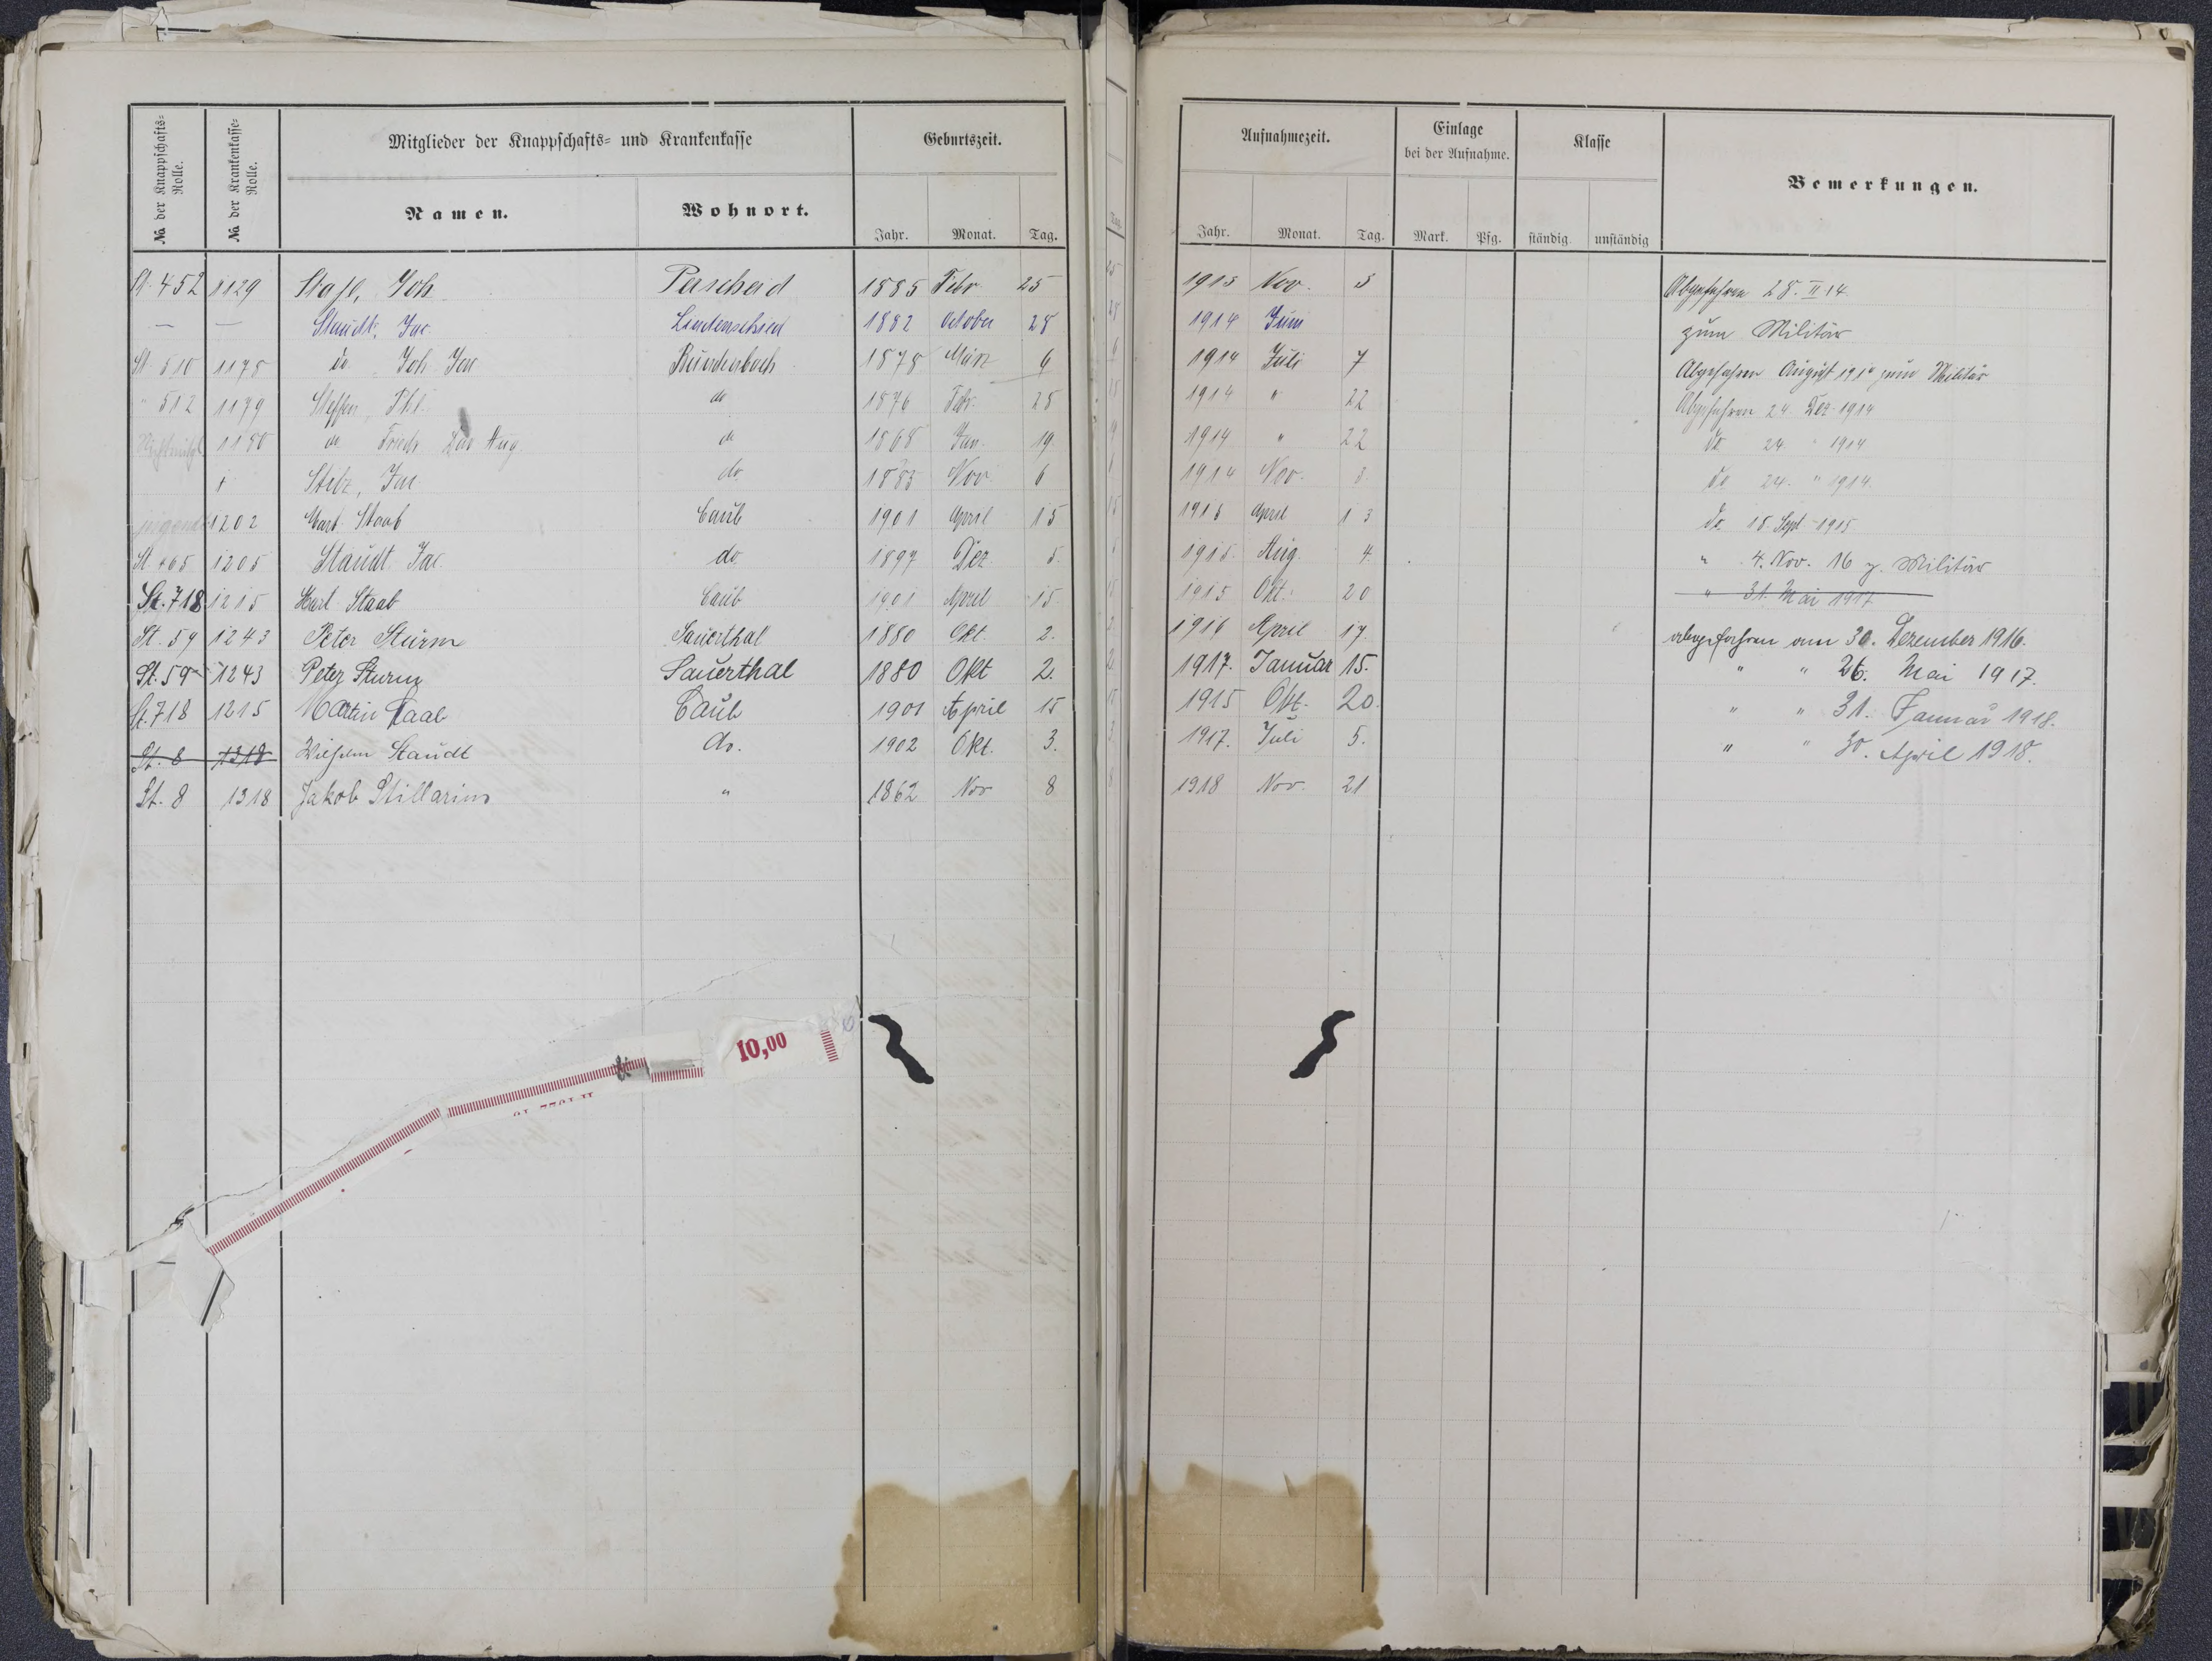 № der Knappschafts-Rolle.
№ der Krankenkasse-Rolle.
Mitglieder der Knappschafts- und Krankenkasse
Namen.
Wohnort.
Geburtszeit.
Jahr. Monat. Tag.
Aufnahmezeit.
Jahr. Monat. Tag.
Einlage bei der Aufnahme.
Mark. Pfg.
Klasse
ständig unständig
Bemerkungen.
St. 452 1129 Joh. Perscheid 1885 Febr 25 1913 Nov. 5 Abgefahren 28. II 14
— — Staudt, Jac. Lindenschied 1882 October 28 1914 Juni zum Militär
St. 510 1178 do Joh. Jac Bundenbach 1878 März 6 1914 Juli 7 Abgefahren August 1914 zum Militär
" 512 1179 Steffen, Phl. do 1876 Febr. 25 1914 " 22 Abgefahren 24 Dez. 1914
1180 do Friedr. Aug. do 1868 Jan. 19. 1914 " 22 do 24. " 1914
Jac. do. 1883 Nov 6 1914 Nov. 3 do 24. " 1914
1202 Mart. Staab Caub 1901 April 15 1915 April 13 do. 18. Sept 1915
St. 465 1205 Staudt Jac. do. 1897 Dez 5. 1915. Aug. 4. " 4. Nov. 16 z. Militär
St. 718 1215 Mart. Staab Caub 1901 April 15 1915 Okt. 20 " 31. Mai 1917
St. 59 1243 Peter Sturm Sauerthal 1880 Okt. 2. 1916 April 17. abgefahren am 30. Dezember 1916.
St. 59 1243 Peter Sturm Sauerthal 1880 Okt 2. 1917. Januar 15. " " 26. Mai 1917.
St. 718 1215 Martin Staab Caub 1901 April 15 1915 Okt. 20. " " 31. Januar 1918.
St. 8 1318 Wilhelm Staudt do. 1902 Okt. 3. 1917. Juli 5. " " 30. April 1918.
St. 8 1318 Jakob Stillarius " 1862 Nov 8 1918 Nov. 21
10,00